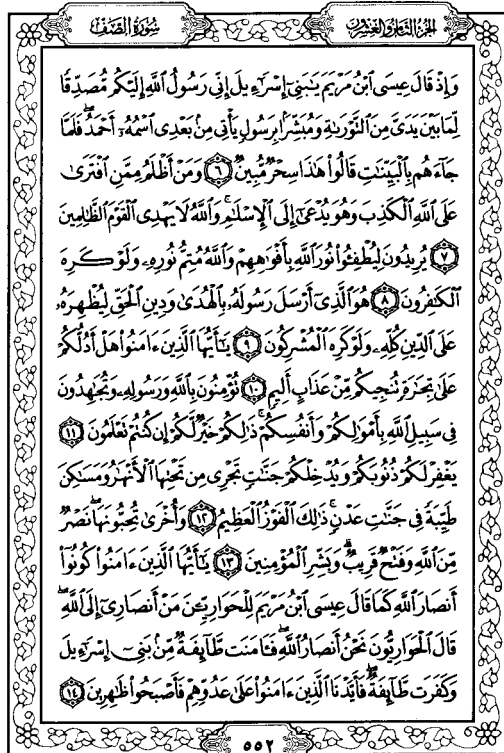 سُورَةُ الصَّفِّ
الجُزْءُ الثَّامِنُ وَالْعِشْرُونَ
وَإِذْ قَالَ عِيسَى ٱبْنُ مَرْيَمَ يَٰبَنِىٓ إِسْرَٰٓءِيلَ إِنِّى رَسُولُ ٱللَّهِ إِلَيْكُم مُّصَدِّقًا
لِّمَا بَيْنَ يَدَىَّ مِنَ ٱلتَّوْرَىٰةِ وَمُبَشِّرًۢا بِرَسُولٍ يَأْتِى مِنۢ بَعْدِى ٱسْمُهُۥٓ أَحْمَدُ ۖ فَلَمَّا
جَآءَهُم بِٱلْبَيِّنَٰتِ قَالُوا۟ هَٰذَا سِحْرٌ مُّبِينٌ ٦ وَمَنْ أَظْلَمُ مِمَّنِ ٱفْتَرَىٰ
عَلَى ٱللَّهِ ٱلْكَذِبَ وَهُوَ يُدْعَىٰٓ إِلَى ٱلْإِسْلَٰمِ ۚ وَٱللَّهُ لَا يَهْدِى ٱلْقَوْمَ ٱلظَّٰلِمِينَ
٧ يُرِيدُونَ لِيُطْفِـُٔوا۟ نُورَ ٱللَّهِ بِأَفْوَٰهِهِمْ وَٱللَّهُ مُتِمُّ نُورِهِۦ وَلَوْ كَرِهَ
ٱلْكَٰفِرُونَ ٨ هُوَ ٱلَّذِىٓ أَرْسَلَ رَسُولَهُۥ بِٱلْهُدَىٰ وَدِينِ ٱلْحَقِّ لِيُظْهِرَهُۥ
عَلَى ٱلدِّينِ كُلِّهِۦ وَلَوْ كَرِهَ ٱلْمُشْرِكُونَ ٩ يَٰٓأَيُّهَا ٱلَّذِينَ ءَامَنُوا۟ هَلْ أَدُلُّكُمْ
عَلَىٰ تِجَٰرَةٍ تُنجِيكُم مِّنْ عَذَابٍ أَلِيمٍ ١٠ تُؤْمِنُونَ بِٱللَّهِ وَرَسُولِهِۦ وَتُجَٰهِدُونَ
فِى سَبِيلِ ٱللَّهِ بِأَمْوَٰلِكُمْ وَأَنفُسِكُمْ ۚ ذَٰلِكُمْ خَيْرٌ لَّكُمْ إِن كُنتُمْ تَعْلَمُونَ ١١
يَغْفِرْ لَكُمْ ذُنُوبَكُمْ وَيُدْخِلْكُمْ جَنَّٰتٍ تَجْرِى مِن تَحْتِهَا ٱلْأَنْهَٰرُ وَمَسَٰكِنَ
طَيِّبَةً فِى جَنَّٰتِ عَدْنٍ ۚ ذَٰلِكَ ٱلْفَوْزُ ٱلْعَظِيمُ ١٢ وَأُخْرَىٰ تُحِبُّونَهَا ۖ نَصْرٌ
مِّنَ ٱللَّهِ وَفَتْحٌ قَرِيبٌ ۗ وَبَشِّرِ ٱلْمُؤْمِنِينَ ١٣ يَٰٓأَيُّهَا ٱلَّذِينَ ءَامَنُوا۟ كُونُوٓا۟
أَنصَارَ ٱللَّهِ كَمَا قَالَ عِيسَى ٱبْنُ مَرْيَمَ لِلْحَوَارِيِّـۧنَ مَنْ أَنصَارِىٓ إِلَى ٱللَّهِ ۖ
قَالَ ٱلْحَوَارِيُّونَ نَحْنُ أَنصَارُ ٱللَّهِ ۖ فَـَٔامَنَت طَّآئِفَةٌ مِّنۢ بَنِىٓ إِسْرَٰٓءِيلَ
وَكَفَرَت طَّآئِفَةٌ ۖ فَأَيَّدْنَا ٱلَّذِينَ ءَامَنُوا۟ عَلَىٰ عَدُوِّهِمْ فَأَصْبَحُوا۟ ظَٰهِرِينَ ١٤
٥٥٢